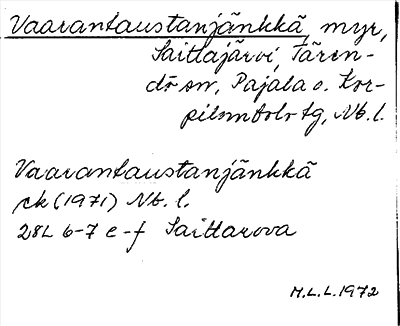 Vaarantaustanjänkkä, myr,
Saittajärvi, Tären-
dö sn, Pajala o. Kor-
pilombolo tg, Nb. l.
Vaarantaustanjänkkä
ek (1971) Nb. l.
28L 6-7 e-f Saittarova
M.L.L. 1972